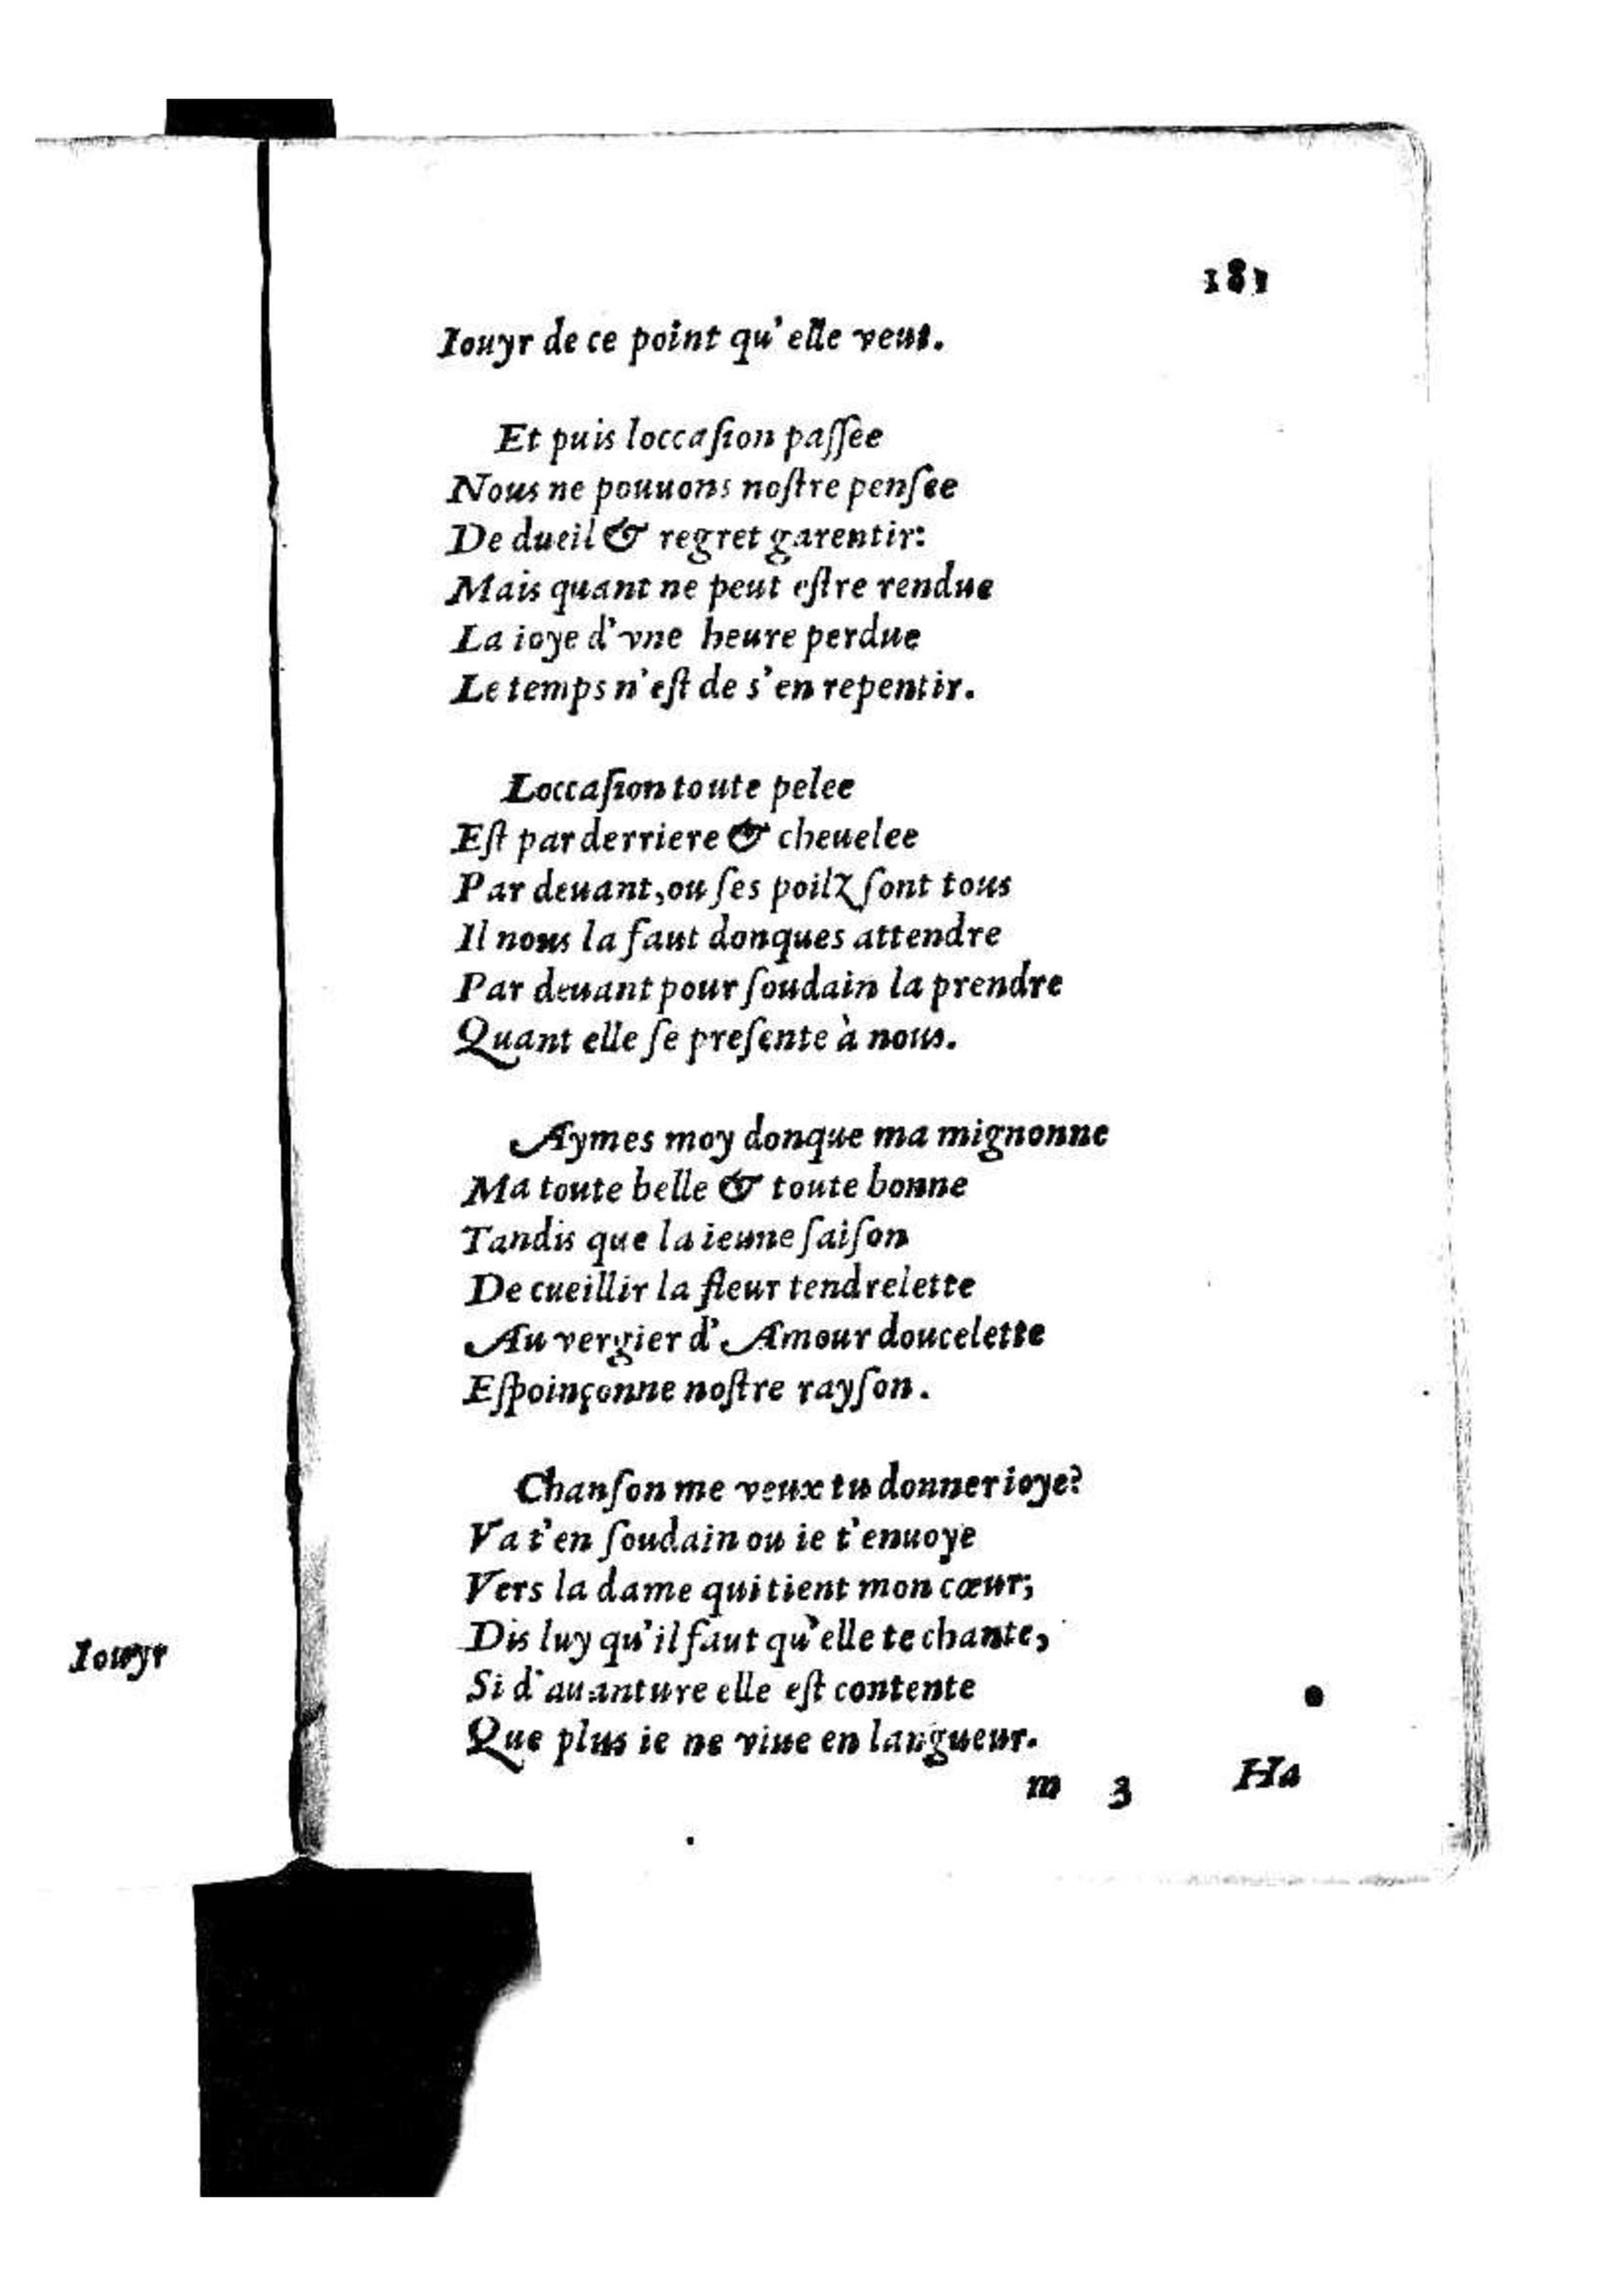 Iouyr
181
Iouyr de ce point qu'elle veut.
Et puis loccaſion paſſee
Nous ne pouuons noſtre penſee
De dueil & regret garentir:
Mais quant ne peut eſtre rendue
La ioye d'vne heure perdue
Le temps n'eſt de s'en repentir.
Loccaſion toute pelee
Eſt par derriere & cheuelee
Par deuant, ou ſes poilz ſont tous
Il nous la faut donques attendre
Par deuant pour ſoudain la prendre
Quant elle ſe preſente à nous.
Aymes moy donque ma mignonne
Ma toute belle & toute bonne
Tandis que la ieune ſaiſon
De cueillir la fleur tendrelette
Au vergier d'Amour doucelette
Eſpoinçonne noſtre rayſon.
Chanſon me veux tu donner ioye?
Va t'en ſoudain ou ie t'enuoye
Vers la dame qui tient mon cœur;
Dis luy qu'il faut qu'elle te chante,
Si d'auanture elle eſt contente
Que plus ie ne viue en langueur.
m 3 Ha